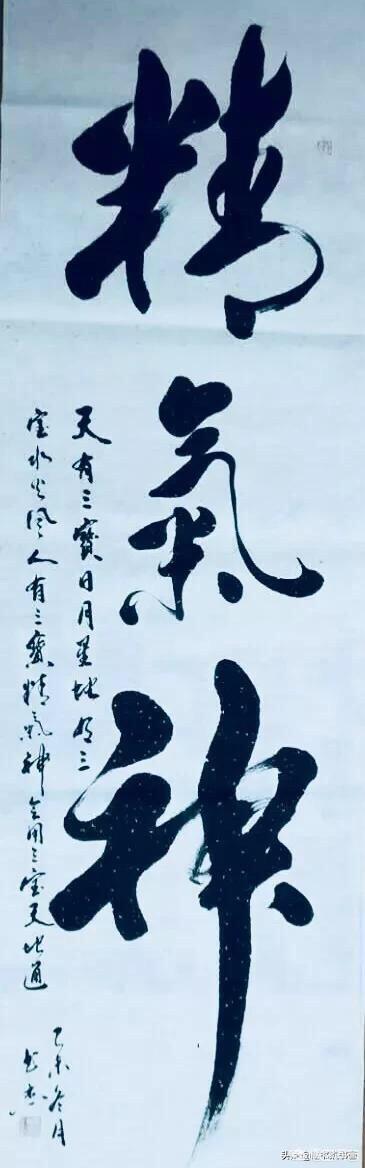 精氣神
天有三寶日月星地有三
宝水火風人有三寶精氣神会用三宝天地通
乙未冬月